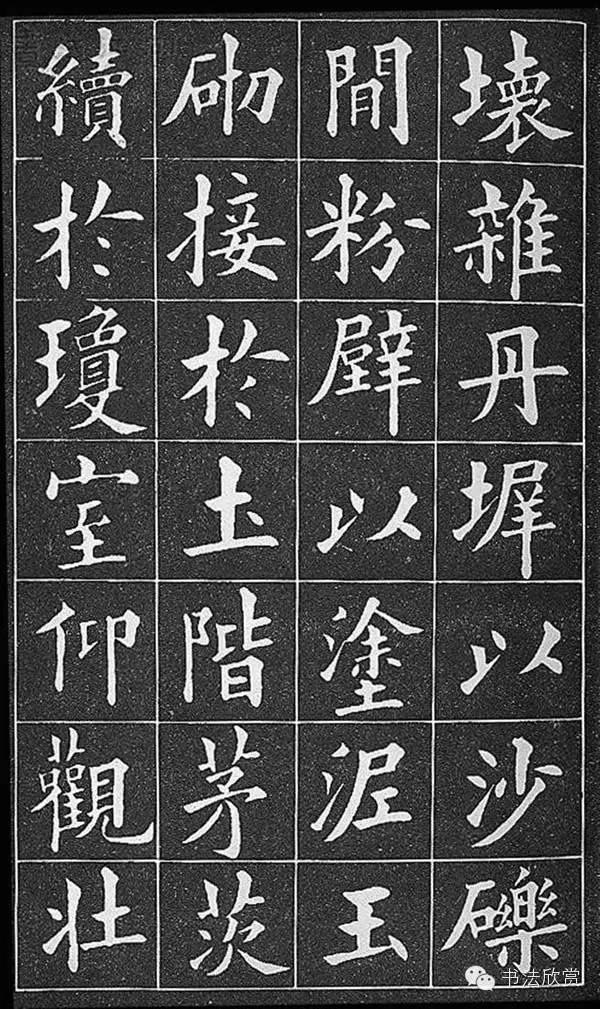 壞雜丹墀以沙礫
間粉壁以塗泥玉
砌接於土階茅茨
續於瓊室仰觀壯
书法欣赏